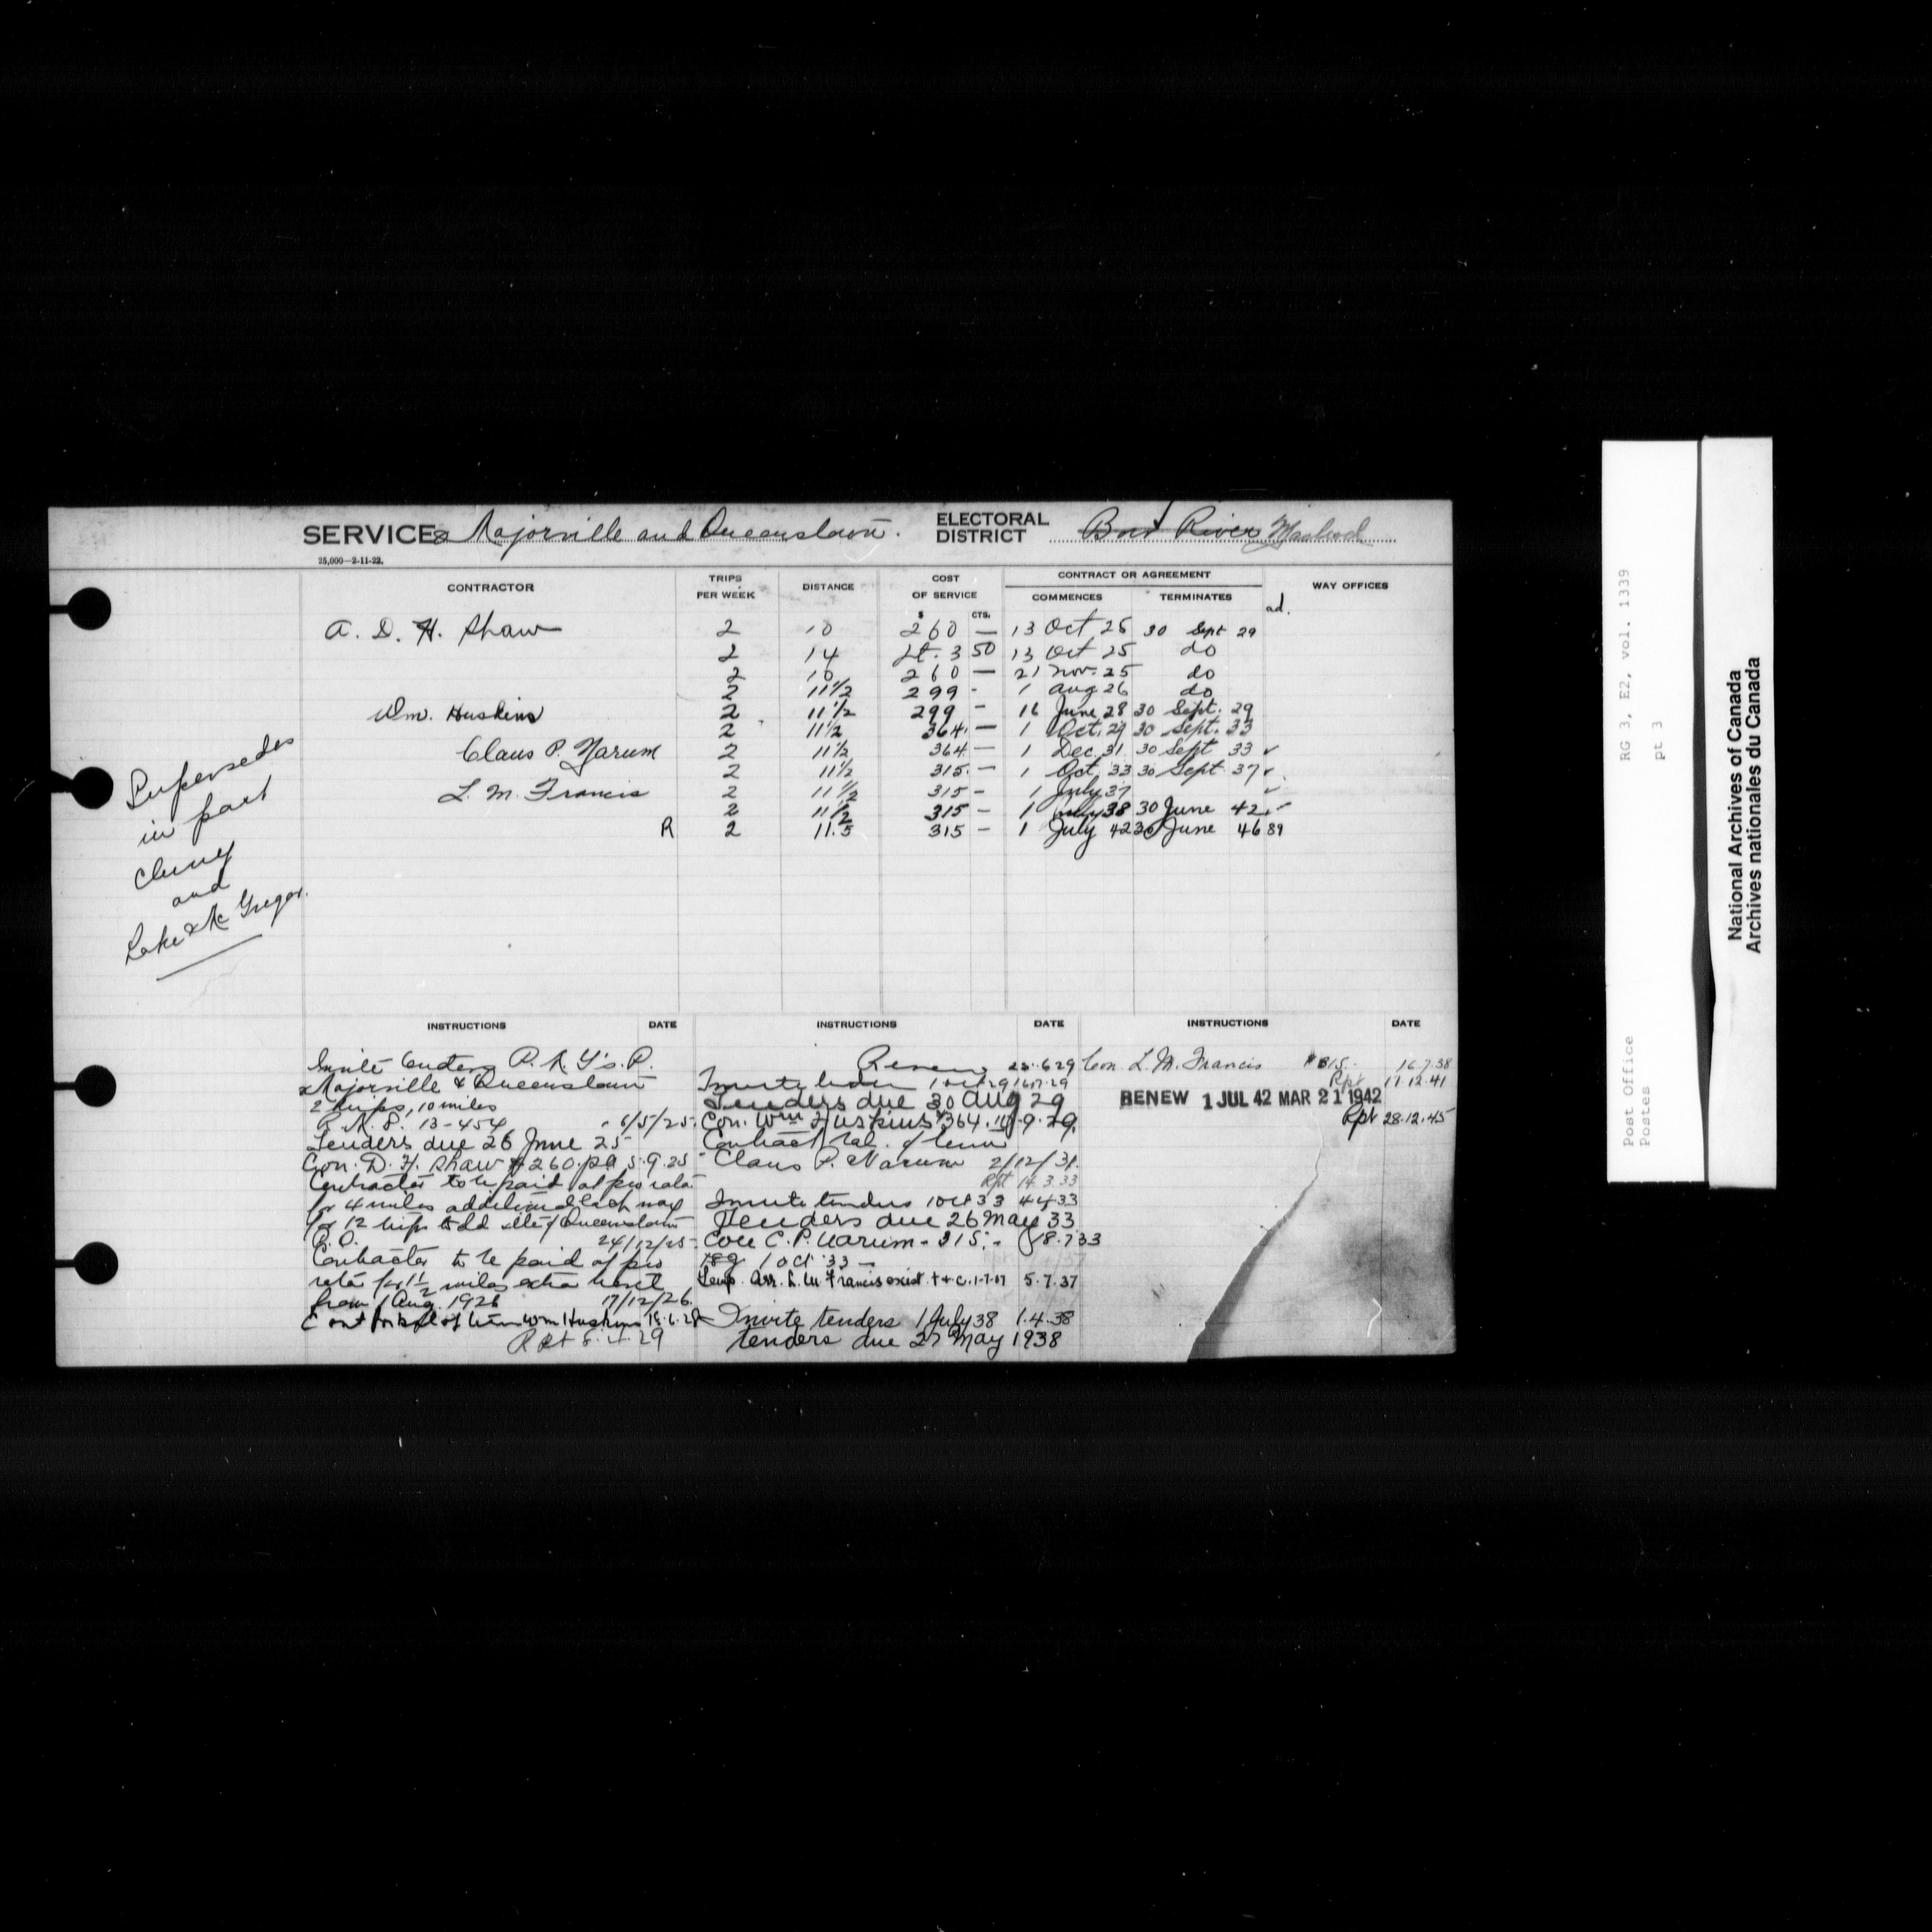 SERVICE Majorville and Queenstown.
ELECTORAL DISTRICT Bow River Macleod
25,000—2-11-22.
CONTRACTOR TRIPS PER WEEK DISTANCE COST OF SERVICE CONTRACT OR AGREEMENT WAY OFFICES
$ CTS. COMMENCES TERMINATES
ad.
A. D. H. Shaw 2 10 260 — 13 Oct 25 30 Sept 29
2 14 3 50 13 Oct 25 do
2 10 260 — 21 Nov. 25 do
2 11 1/2 299 - 1 Aug 26 do
Wm. Huskins 2 11 1/2 299 - 16 June 28 30 Sept. 29
2 11 1/2 364. — 1 Oct. 29 30 Sept. 33
Claus P. Narum 2 11 1/2 364 — 1 Dec. 31 30 Sept 33 ✓
2 11 1/2 315. — 1 Oct. 33 30 Sept 37 ✓
L. M. Francis 2 11 1/2 315 - 1 July 37 ✓
2 11 1/2 315 — 1 July 38 30 June 42 ✓
R 2 11.5 315 — 1 July 42 30 June 46 89
Supersedes
in part
Cluny
and
Lake McGregor.
INSTRUCTIONS DATE
Invite tenders
Majorville & Queenstown
2 trips, 10 miles
13-454 6/5/25
Tenders due 26 June 25
Con. D. H. Shaw $260. pa 5.9.25
Contractor to be paid at pro rata
for 4 miles additional each way
for 12 trips to old site of Queenstown
P.O. 24/12/25
Contractor to be paid at pro
rata for 1 1/2 miles extra travel
from 1 Aug. 1926 17/12/26.
Cont for bal of term Wm Huskins 18.6.28
Rpt 8.4.29
INSTRUCTIONS DATE
Renew 25.6.29
Invite tenders 1 Oct 29
Tenders due 30 Aug 29
Con. Wm Huskins $364. 9.29.
Contract bal. of term
Claus P. Narum 2/12/31.
Rpt 14.3.33
Invite tenders 1 Oct 33 4.4.33
Tenders due 26 May 33
Con C. P. Narum - 315. - 18.7.33
1 Oct 33 —
Temp. Arr. L. M. Francis exist. t & c. 1-7-37 5.7.37
Invite tenders 1 July 38 1.4.38
Tenders due 27 May 1938
INSTRUCTIONS DATE
Con. L. M. Francis $315. 16.7.38
Rpt 17.12.41
RENEW 1 JUL 42 MAR 21 1942
Rpt 28.12.45
RG 3, E2, vol. 1339
pt 3
Post Office
Postes
National Archives of Canada
Archives nationales du Canada